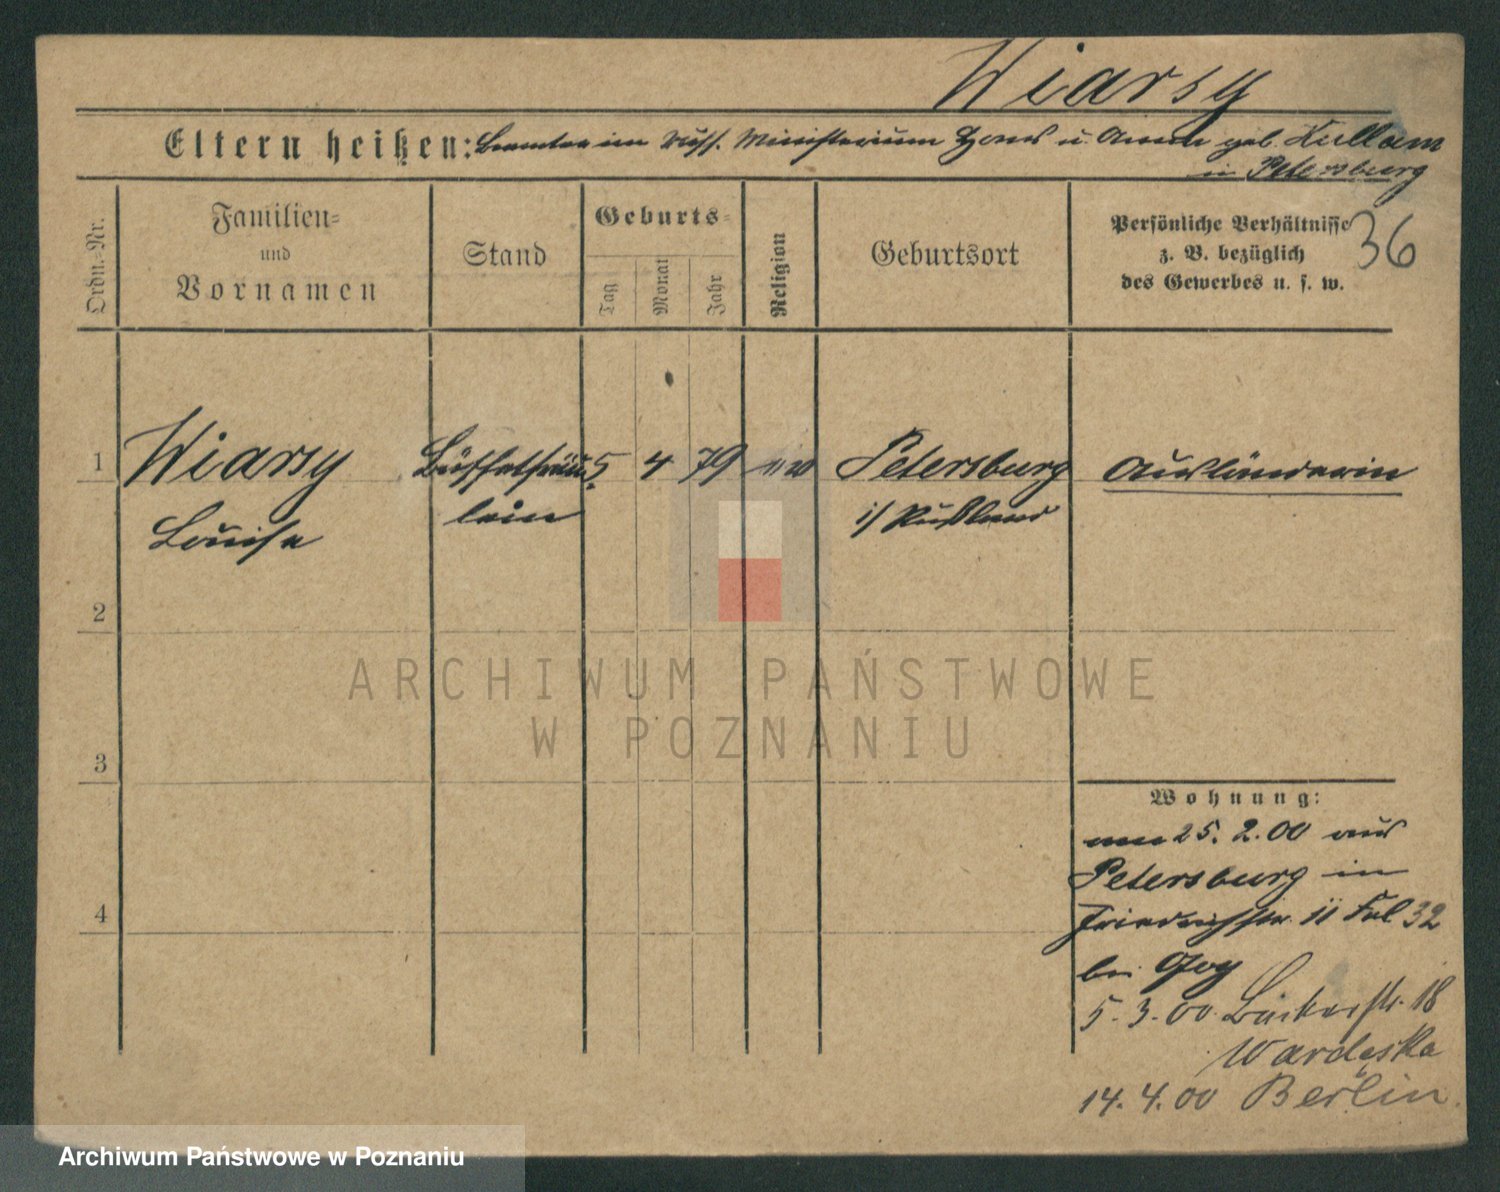 Wiarsy
Eltern heißen: Beamter im Russ. Ministerium Hans u. Anna geb. Kullam
in Petersburg
36
Ordn.-Nr.
Familien-
und
Vornamen
Stand
Geburts-
Tag
Monat
Jahr
Religion
Geburtsort
Persönliche Verhältnisse
z. B. bezüglich
des Gewerbes u. s. w.
1 Wiarsy Büffetfräu 5. 4 79 ev Petersburg Ausländerin
Louise lein i/ Rußland
2
3
4
Wohnung:
am 25. 2. 00 aus
Petersburg in
Friedrichstr. 11 Fol 32
bei
5. 3. 00 Bäckerstr. 18
Wardęska
14. 4. 00 Berlin.
ARCHIWUM PAŃSTWOWE
W POZNANIU
Archiwum Państwowe w Poznaniu